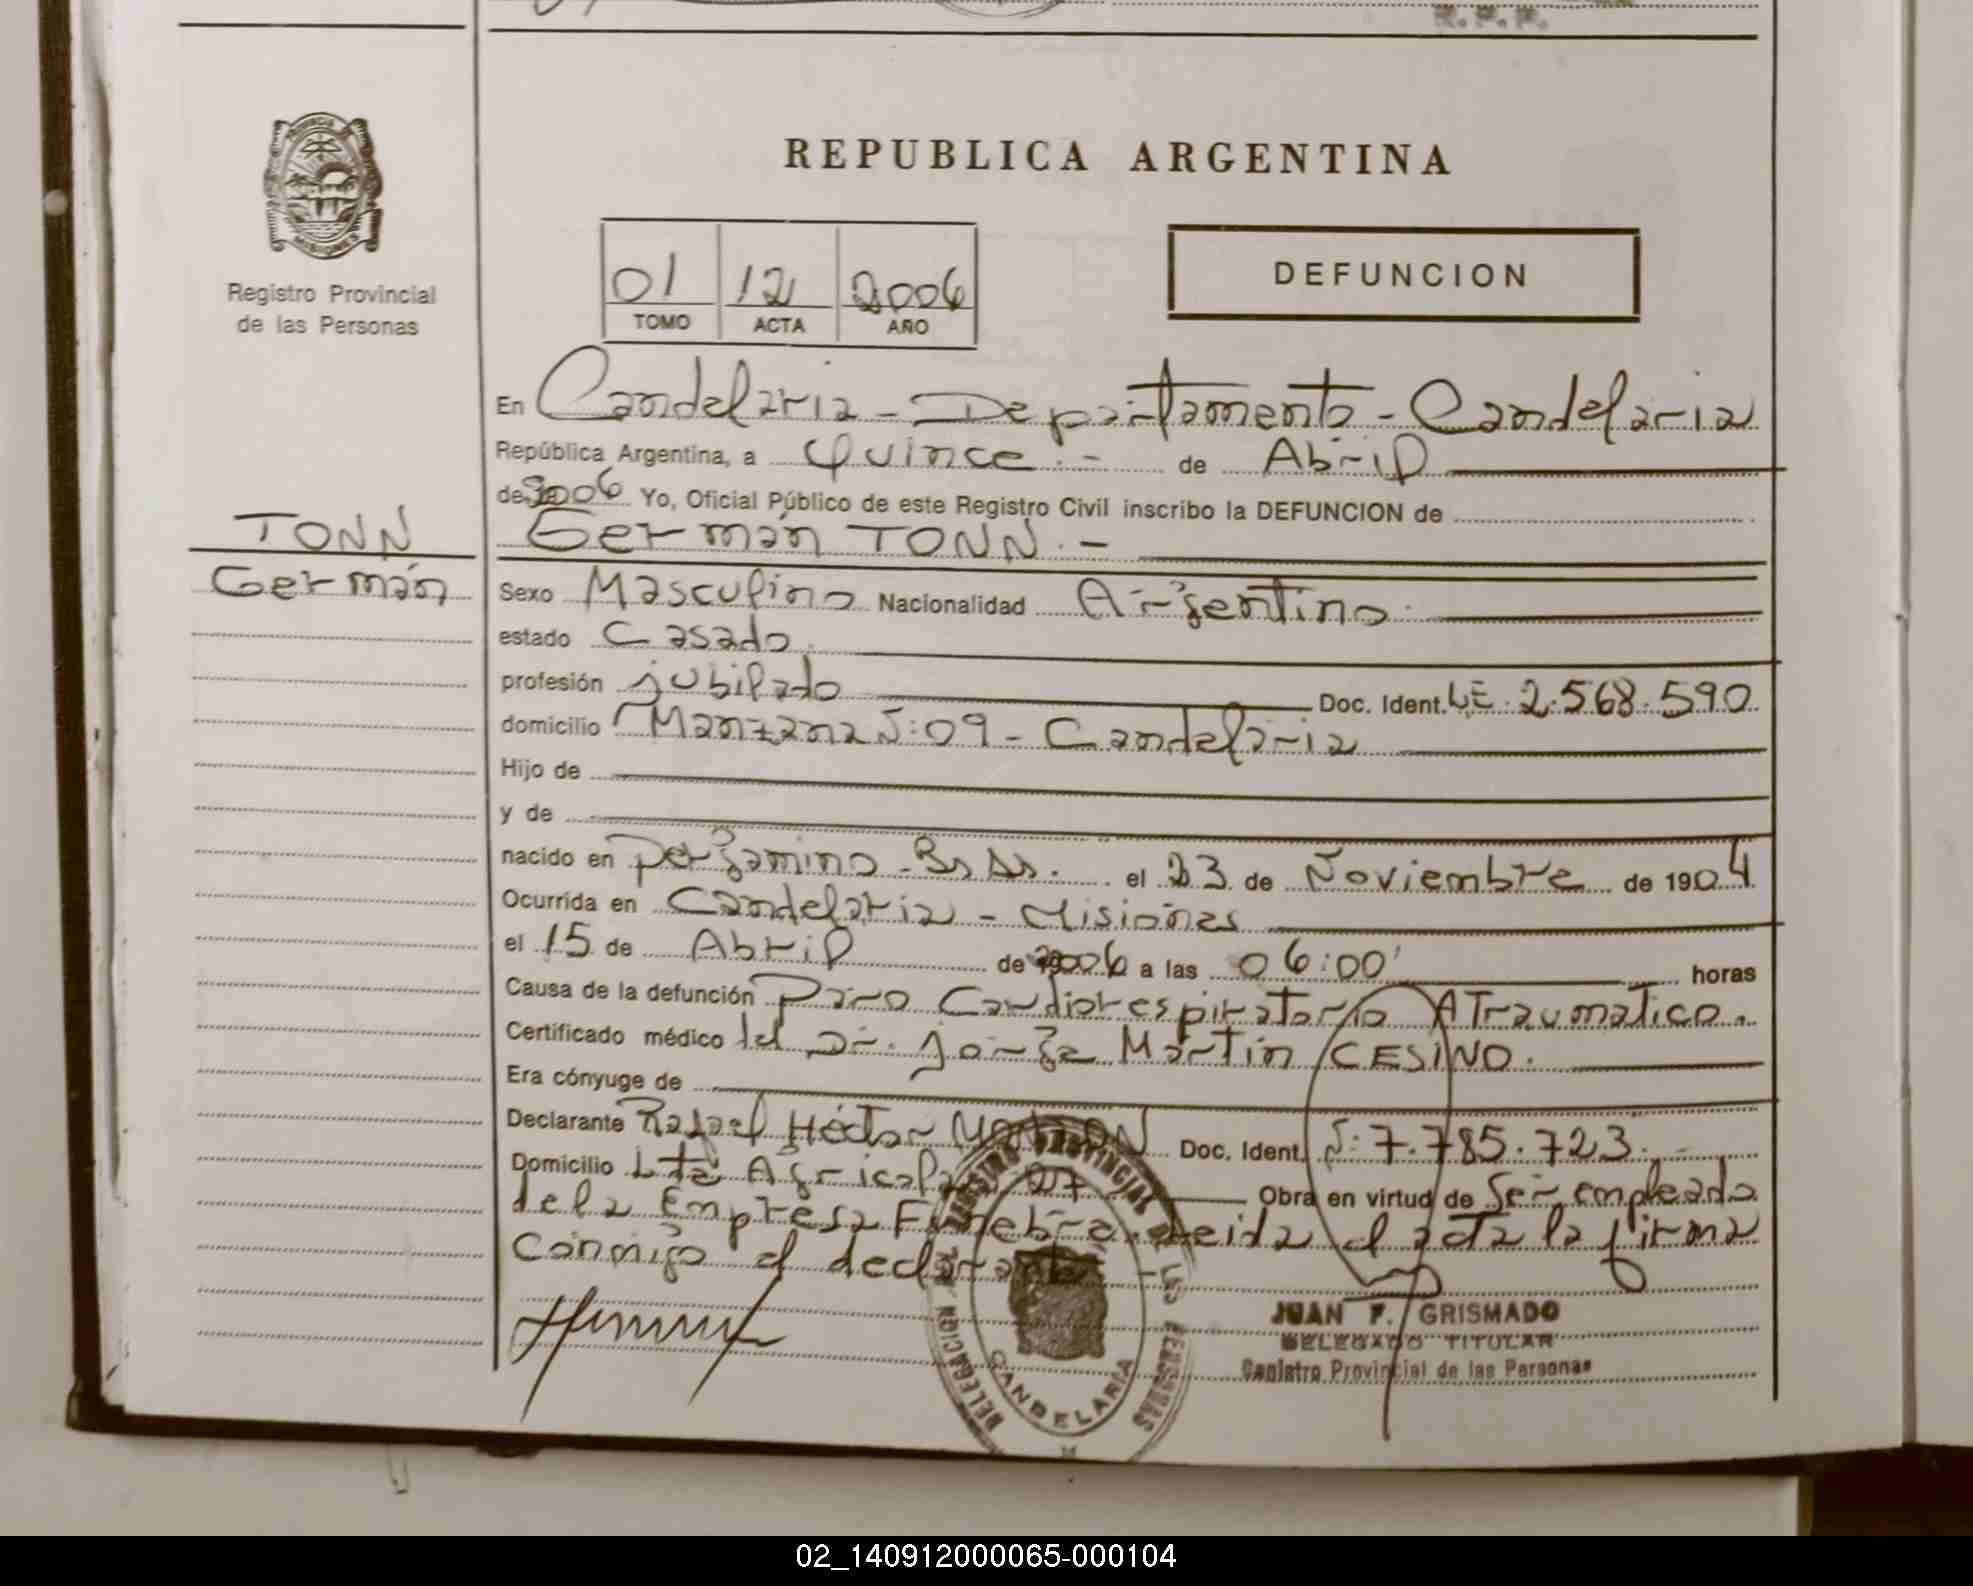 R. P. P.
PROVINCIA DE
MISIONES
Registro Provincial
de las Personas
REPUBLICA ARGENTINA
01 12 2006
TOMO ACTA AÑO
DEFUNCION
En Candelaria - Departamento - Candelaria
República Argentina, a Quince.- de Abril
de 2006 Yo, Oficial Público de este Registro Civil inscribo la DEFUNCION de
Germán TONN.-
TONN
Germán
Sexo Masculino Nacionalidad Argentino.
estado Casado.
profesión jubilado Doc. Ident. LE. 2.568.590
domicilio Manzana N:09 - Candelaria
Hijo de
y de
nacido en Pergamino - Bs As. el 23 de Noviembre de 1904
Ocurrida en Candelaria - Misiones
el 15 de Abril de 2006 a las 06:00' horas
Causa de la defunción Paro Cardiorespiratorio ATraumatico.
Certificado médico del Dr. Jorge Martin CESINO.
Era cónyuge de
Declarante Rafael Héctor Doc. Ident. N: 7.785.723.-
Domicilio Lte Agricola 27 Obra en virtud de Ser empleado
de la Empresa Funebre. Leida el acta la firma
Conmigo el declarante.-
REGISTRO PROVINCIAL DE LAS PERSONAS
DELEGACION
CANDELARIA
JUAN F. GRISMADO
DELEGADO TITULAR
Registro Provincial de las Personas
02_140912000065-000104